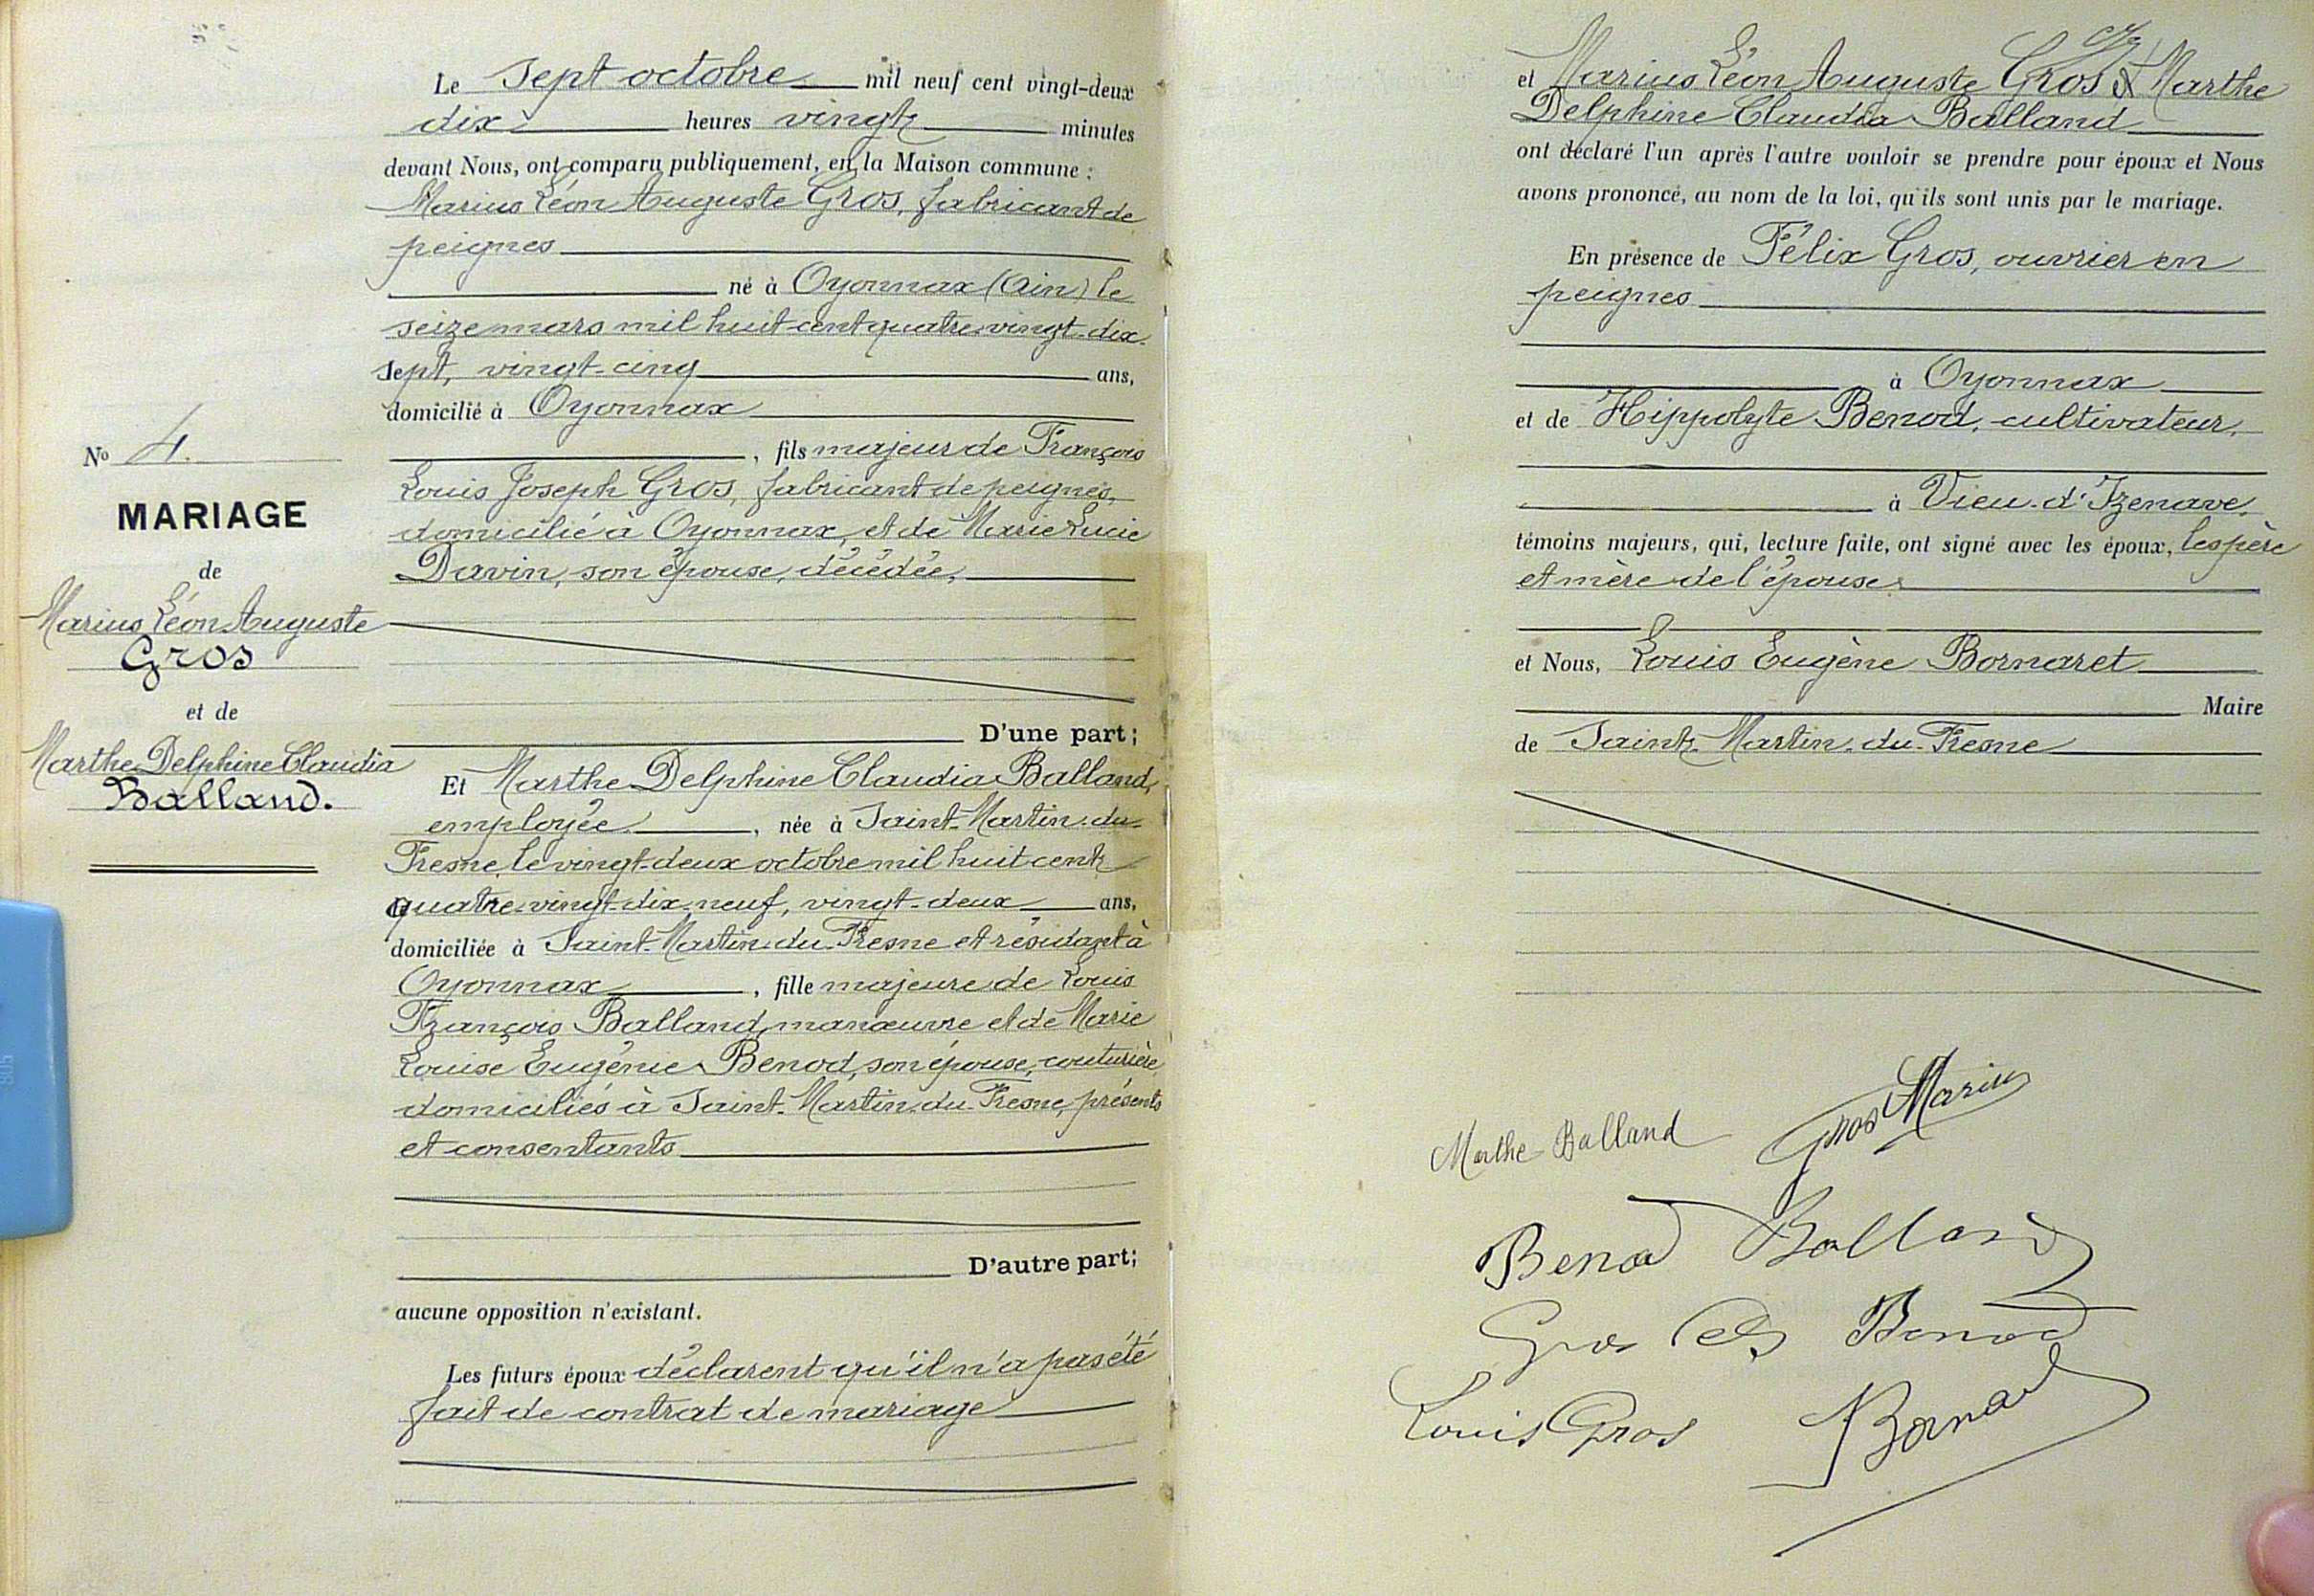 Le Sept octobre mil neuf cent vingt-deux
dix heures vingt minutes
devant Nous, ont comparu publiquement, en la Maison commune :
Marius Léon Auguste Gros, fabricant de
peignes
né à Oyonnax (Ain) le
seize mars mil huit cent quatre-vingt-dix-
sept, vingt-cinq ans,
domicilié à Oyonnax
, fils majeur de François
Louis Joseph Gros, fabricant de peignes,
domicilié à Oyonnax, et de Marie Lucie
Davin, son épouse, décédée,
D'une part;
Et Marthe Delphine Claudia Balland,
employée, née à Saint-Martin-du-
Fresne, le vingt-deux octobre mil huit cent
quatre-vingt-dix-neuf, vingt-deux ans,
domiciliée à Saint-Martin-du-Fresne et résidant à
Oyonnax, fille majeure de Louis
François Balland, manœuvre et de Marie
Louise Eugénie Benod, son épouse, couturière
domiciliés à Saint-Martin-du-Fresne, présents
et consentants
D'autre part;
aucune opposition n'existant.
Les futurs époux déclarent qu'il n'a pas été
fait de contrat de mariage
No 4.
MARIAGE
de
Marius Léon Auguste
Gros
et de
Marthe Delphine Claudia
Balland.
et Marius Léon Auguste Gros & Marthe
Delphine Claudia Balland
ont déclaré l'un après l'autre vouloir se prendre pour époux et Nous
avons prononcé, au nom de la loi, qu'ils sont unis par le mariage.
En présence de Félix Gros, ouvrier en
peignes
à Oyonnax
et de Hippolyte Benod, cultivateur,
à Vieu-d'Izenave,
témoins majeurs, qui, lecture faite, ont signé avec les époux, les père
et mère de l'épouse
et Nous, Louis Eugène Bornaret
Maire
de Saint-Martin-du-Fresne
Marthe Balland
Gros Marius
Benod Balland
Gros Benod
Louis Gros